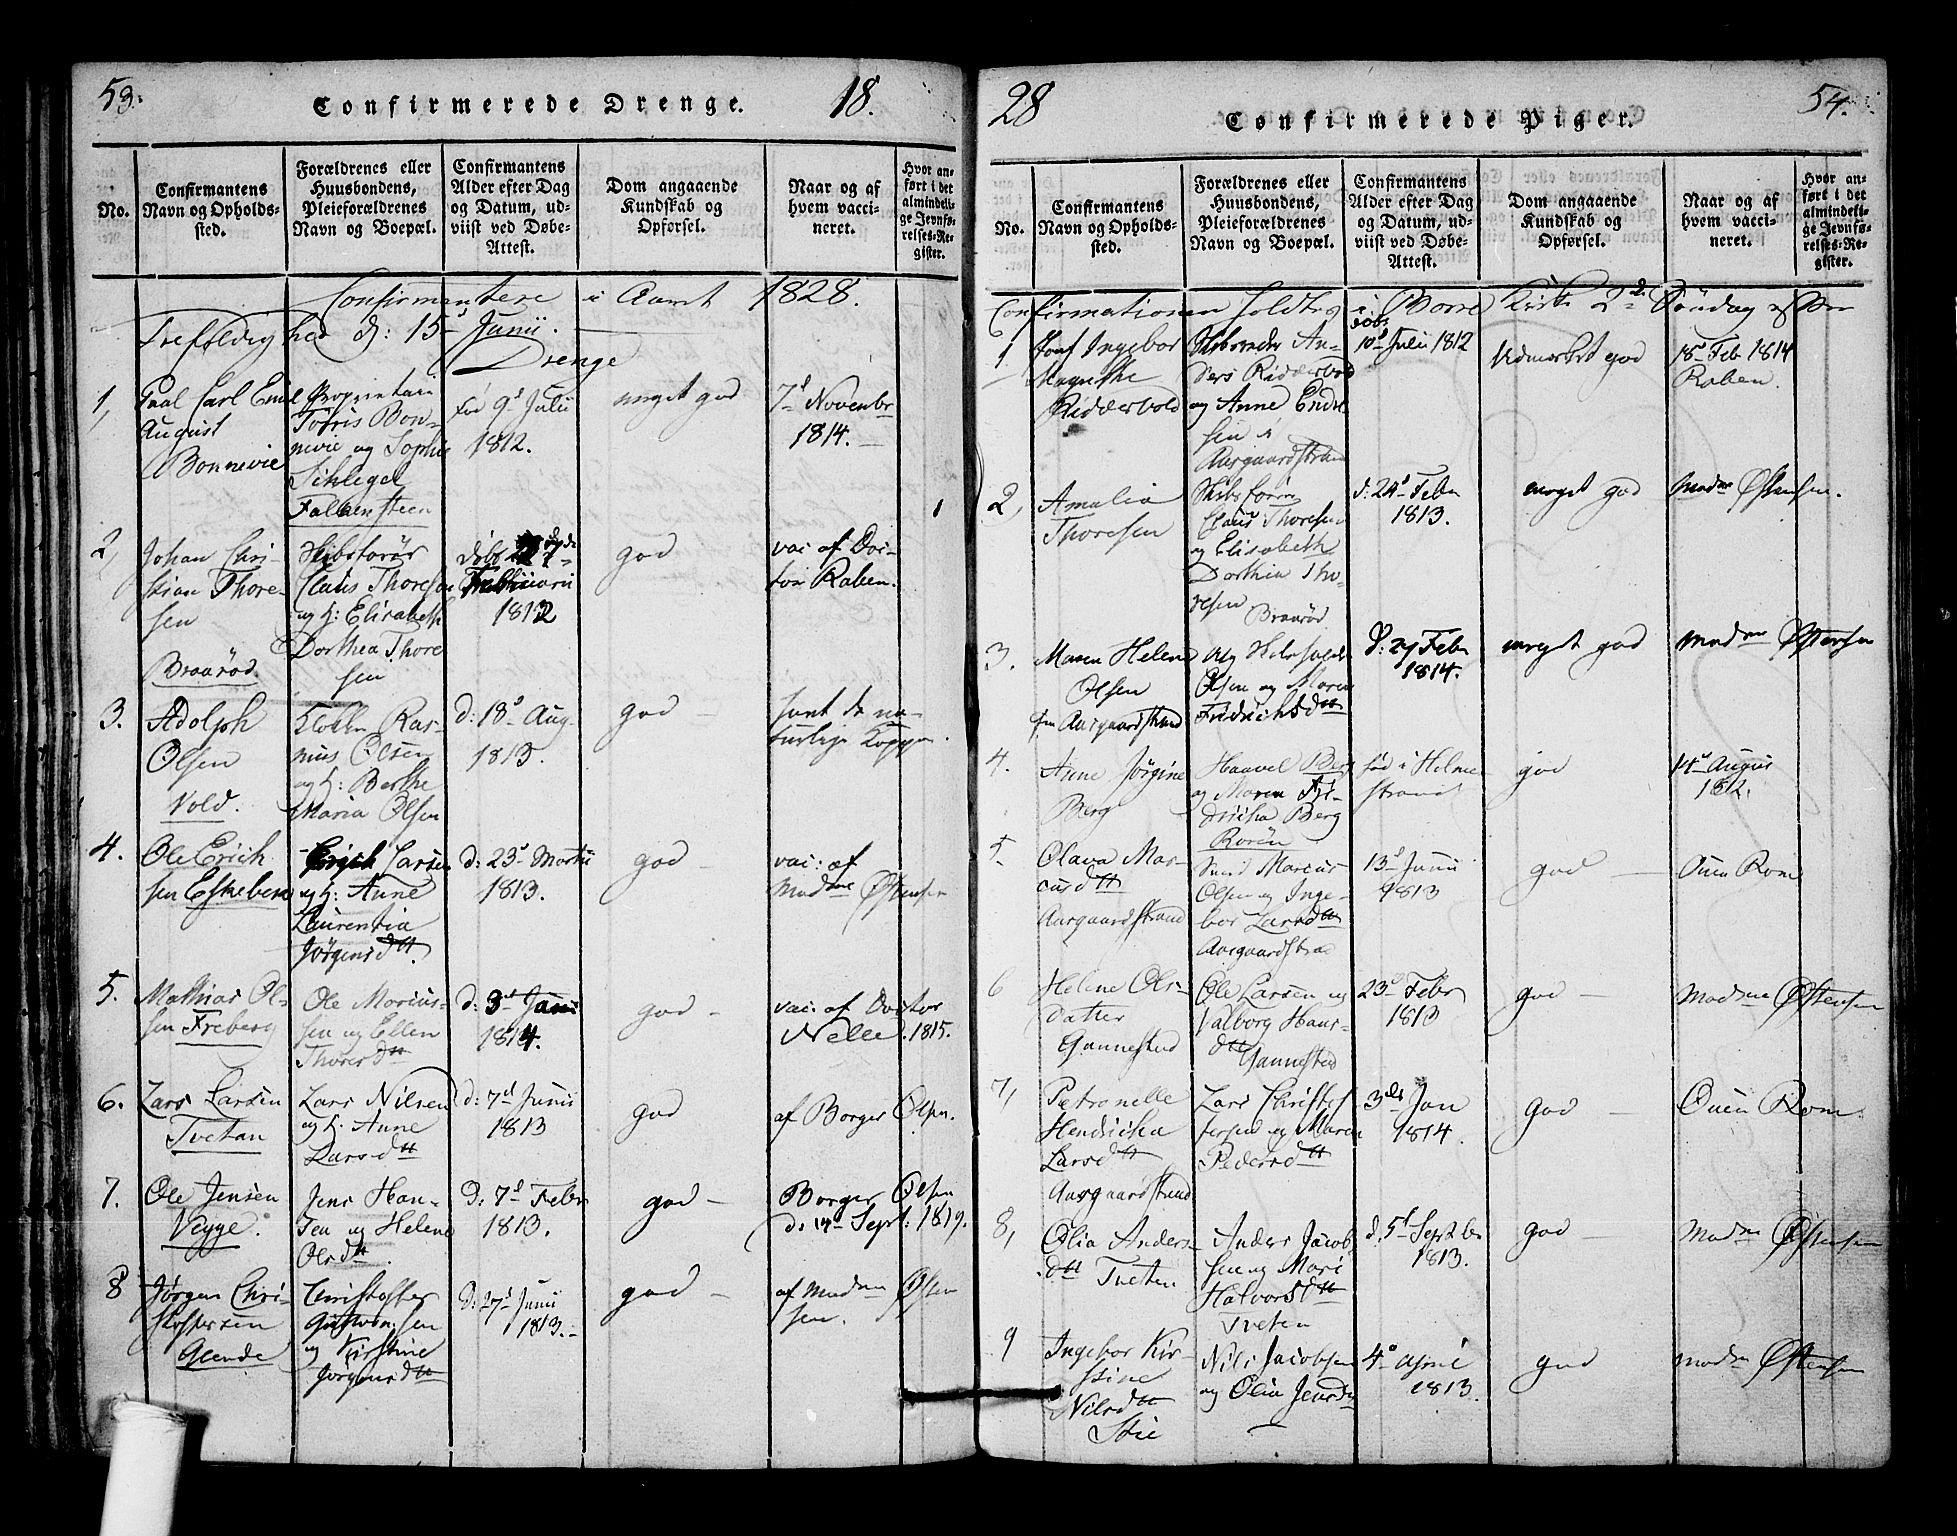 53.
Confirmerede Drenge.
18.
No.
Confirmantens
Navn og Opholds-
sted.
Forældrenes eller
Huusbondens,
Pleieforældrenes
Navn og Boepæl.
Confirmantens
Alder efter Dag
og Datum, ud-
viist ved Døbe-
Attest.
Dom angaaende
Kundskab og
Opførsel.
Naar og af
hvem vacci-
neret.
Hvor an-
ført i det
almindeli-
ge Jevnfø-
relses-Re-
gister.
Confirmantere i Aaret 1828.
Trefoldighed d: 15d Junii.
Drenge
1,
Paal Carl Emil
August
Bonnevie
Proprietair
Bon-
nevie og Sophie
Schlegel
Falkensteen
fød 9d Julii
1812.
meget god
7d Novenbr
1814.
2,
Johan Chri-
stian Thore-
sen
Braarød.
Skibsførør
Claus Thoresen
og h: Elisabeth
Dorthea Thore
sen
døbt
Februarii
1812
god
vac: af Doc-
tor Raben.
1
3.
Adolph
Olsen
Vold.
Ras-
mus Olsen
og h: Berthe
Maria Olsen
d: 18d Aug
1813.
god
havt de na-
turlige Kopper.
4.
Ole Erich
sen Eskebek
Larsen
og h: Anne
Laurentia
Jørgensdtt.
d: 23d Martii
1813.
god
vac: af
Madme Østensen
5.
Mathias Ol-
sen Freberg
Ole Marius-
sen og Ellen
Thorersdtt
d: 3d Junii
1814.
god
vac: af Doctor
Nelle. 1815.
6.
Lars Larsen
Tvetan
Lars Nilsen
og h: Anne
Larsdtt
d: 7d Junii
1813
god
af Borger Olsen.
7.
Ole Jensen
Vegge.
Jens Han-
sen og Helene
Olsdtt.
D: 7d Febr
1813.
god
Borger Olsen
d: 14d Sept: 1819.
8
Jørgen Chri-
stoffersen
Grende
Christoffer
Gustavsen
og Kirstine
Jørgensdtt
D: 27d Junii
1813.
god
af Madme Østen
sen.
28
Confirmerede Piger.
54.
No.
Confirmantens
Navn og Opholds-
sted.
Forældrenes eller
Huusbondens,
Pleieforældrenes
Navn og Boepæl.
Confirmantens
Alder efter Dag
og Datum, ud-
viist ved Døbe-
Attest.
Dom angaaende
Kundskab og
Opførsel.
Naar og af
hvem vacci-
neret.
Hvor an-
ført i det
almindeli-
ge Jevnfø-
relses-Re-
gister.
Confirmationen holdtes i Borre Kirke 2d Søndag efter
1
Jomf Ingebor
Magrethe
Ridderbold
Skibsreder An-
ders Ridderbold
og Anne
sen i
Aasgaardstrand
døbt
10d Julii 1812
Udmærket god
18d Feb 1814
Raben.
2,
Amalia
Thoresen
Skibsførør
Claus Thoresen
og Elisabeth
Dorthea Tho-
resen Braarød
d: 24d Febr
1813.
meget god
Madme Østensen.
3.
Maren Helene
Olsen
fra Aasgaardstrand
Olsen og Maren
Fridrichsdtt
d: 27 Febr
1814.
meget god
Madme Østensen
4.
Anne Jørgine
Berg
Haavel Berg
og Maren Fri-
dricha Berg
Rorøn
fød i Holme
strand
god
14d Augus
1812.
5.
Olava Mar-
cusdtt
Aasgaardstrand
Marcus
Olsen og Inge-
bor Larsdtt
Aasgaardstrand
13d Junii
1813
god
Ouen Rom
6
Helene Ols-
datter
Gannestad
Ole Larsen og
Valborg Hans-
dtt Gannestad
23d Febr
1813
god
Madme Østensen
7,
Petronelle
Hendricha
Larsdtt
Aasgaardstrand
Lars Christof-
fersen og Maren
Pedersdtt
3die Jan
1814.
god
Ouen Rom.
8,
Olia Anders-
dtt Tveten
Anders Jacob-
sen og Mari
Halvorsdtt
Tveten
d: 5d Septbr
1813.
god
Madme Østensen
9
Ingebor Kir-
stine
Nilsdtt
Stie
Nils Jacobsen
og Olia Jensdtt
4d April
1813.
god
Madme Østensen